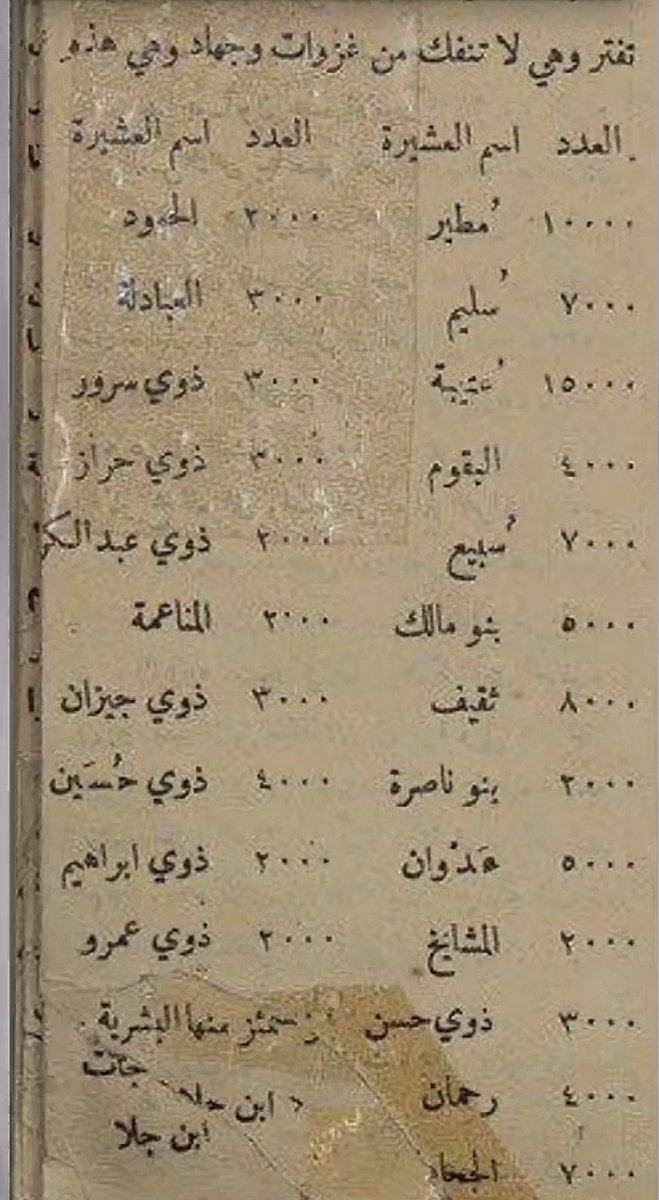 تفتر وهي لا تنفك من غزوات وجهاد وهي هذه
العدد اسم العشيرة العدد اسم العشيرة
١٠٠٠٠ مُطير ٢٠٠٠ الحمود
٧٠٠٠ سُليم ٣٠٠٠ العبادلة
١٥٠٠٠ عُتيبة ٣٠٠٠ ذوي سرور
٤٠٠٠ البقوم ٣٠٠٠ ذوي حراز
٧٠٠٠ سُبيع ٢٠٠٠ ذوي عبد الكر
٥٠٠٠ بنو مالك ٢٠٠٠ المناعمة
٨٠٠٠ ثقيف ٣٠٠٠ ذوي جيزان
٢٠٠٠ بنو ناصرة ٤٠٠٠ ذوي حُسَين
٥٠٠٠ عَدْوان ٢٠٠٠ ذوي ابراهيم
٢٠٠٠ المشايخ ٢٠٠٠ ذوي عمرو
٣٠٠٠ ذوي حسن منها البشرية .
جات
٤٠٠٠ رحمان ابن جلا
ابن جلا
٧٠٠٠